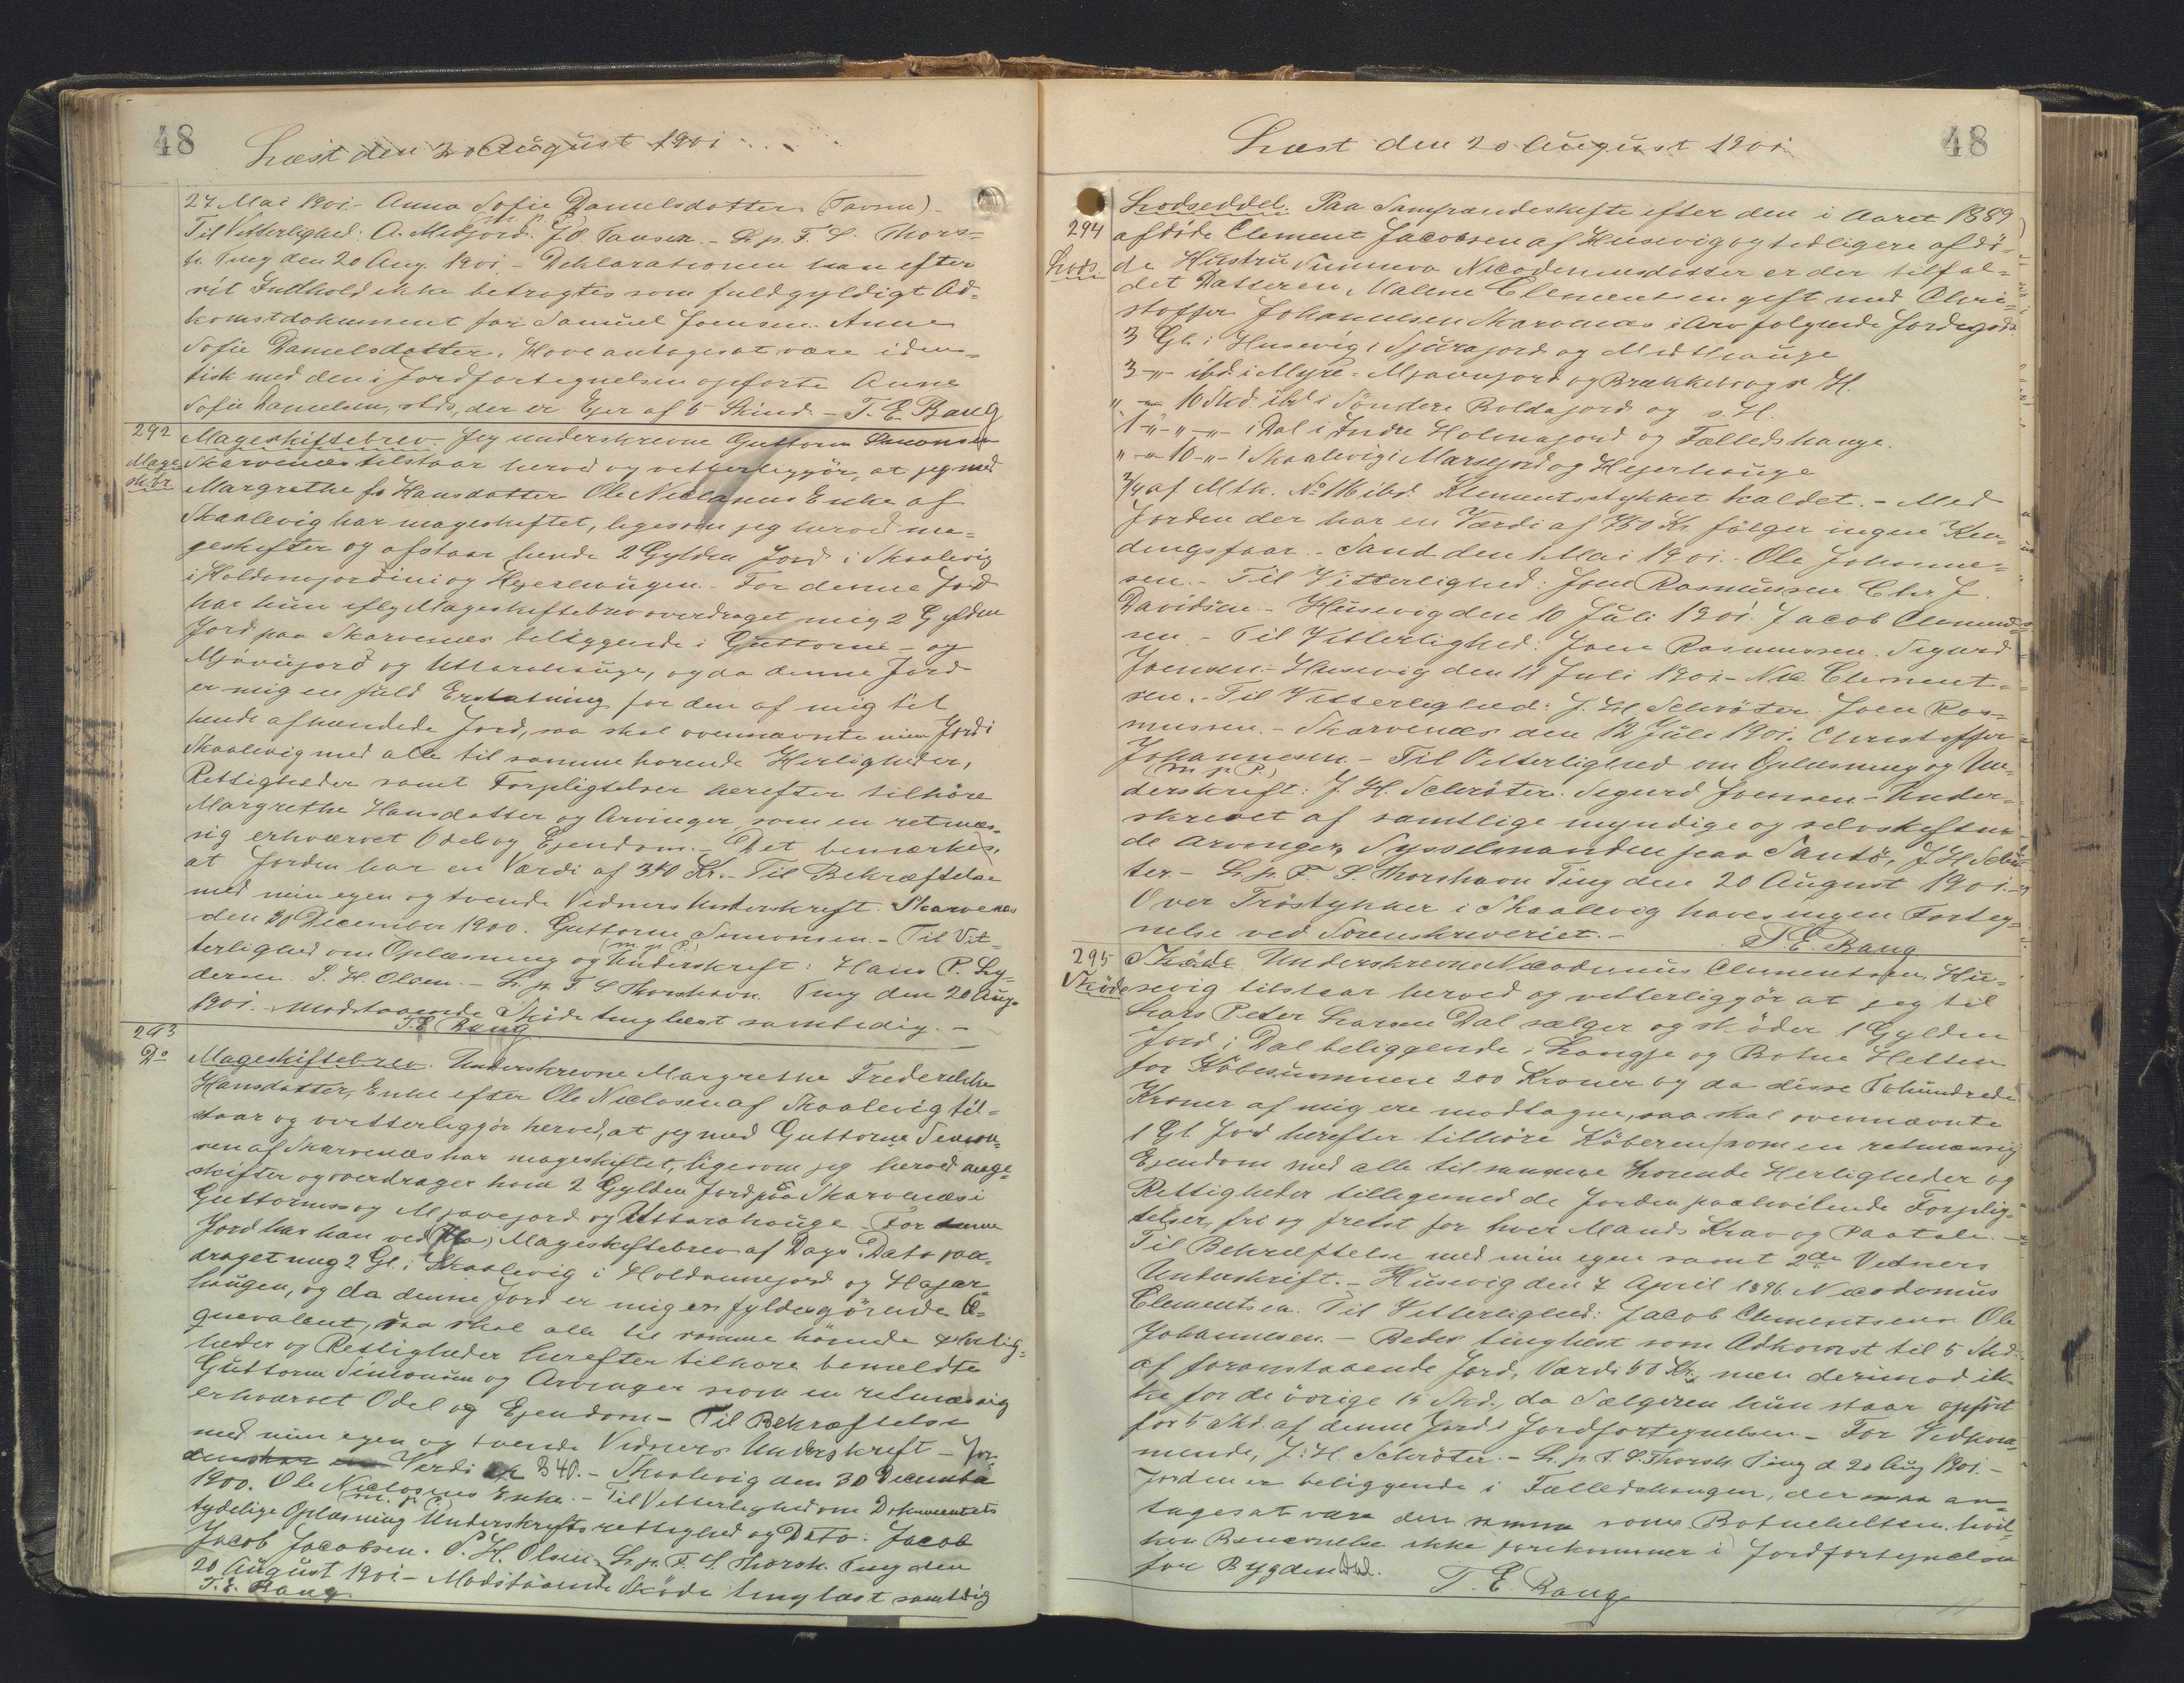 48
Læst den 20 August 1901
27 Mai 1901. Anna Sofie Danielsdatter (Tavsen)
(m. p. P.)
Til Vitterlighed: A. Midjord. J.O. Tausen. - L. p. F. S. Thors=
h. Ting den 20 Aug. 1901 - Deklarationen kan efter
sit Indhold ikke betragtes som fuldgyldigt Ad=
komstdokument for Samuel Joensen. Anne
Sofie Danielsdatter, Hove antages at være iden=
tisk med den i Jordfortegnelsen opførte Anne
Sofie Danielsen, stds, der er Ejer af 5 Skind. - T. E. Bang
292
Mageskiftebrev. Jeg underskrevne Guttorm Simonsen
Mage
sk.br.
Skarvenæs tilstaar herved og vitterliggör, at jeg med
Margrethe Hansdatter Ole Niclasens Enke af
Skaalevig har mageskiftet, ligesom jeg herved ma=
geskifter og afstaar hende 2 Gylden Jord i Skaalevig
i Holdanejordini og Hejerhaugen. - For denne Jord
har hun iflg Mageskiftebrev overdraget mig 2 Gylden
Jord paa Skarvenæs beliggende i Guttorms- og
Mjóvujord og Uttarahauge, og da denne Jord
er mig en fuld Erstatning for den af mig til
hende afhændede Jord, saa skal ovennævnte min Jord i
Skaalevig med alle til samme hørende Herligheder,
Rettigheder samt Forpligtelser herefter tilhöre
Margrethe Hansdatter og Arvinger som en retmæs=
sig erhvervet Odel og Ejendom. - Det bemærkes,
at Jorden har en Værdi af 340 Kr. - Til Bekræftelse
med min egen og tvende Vidners Underskrift. Skarvenæs
den 30 December 1900. Guttorm Simonsen. - Til Vit=
(m. p. P.)
terlighed om Oplæsning og Underskrift: Hans P. Ly=
dersen. S. H. Olsen. - L. p. F S Thorshavn Ting den 20 Aug.
1901. Modstaaende Sköde tinglæst samtidig. -
T E Bang
293
Do
Mageskiftebrev. Underskrevne Margrethe Frederikke
Hansdatter, Enke efter Ole Niclasen af Skaalevig til=
staar og vitterliggör herved, at jeg med Guttorm Simon=
sen af Skarvenæs har mageskiftet, ligesom jeg herved mage=
skifter og overdrager ham 2 Gylden Jord paa Skarvenæs i
Guttorms og Mjovejord og Uttarahauge - For denne
Jord har han ved Mageskiftebrev af Dags Dato
draget mig 2 Gl. i Skaalevig i Holdannejord og Hajar=
haugen, og da denne Jord er mig en fyldesgörende E=
quevalent, saa skal alle til samme hörende Herlig=
heder og Rettigheder herefter tilhøre bemeldte
Guttorm Simonsen og Arvinger som en retmæssig
erhvervet Odel og Ejendom - Til Bekræftelse
med min egen og tvende Vidners Underskrift - Jor
den har en Værdi af 340. - Skaalevig den 30 December
1900. Ole Niclasens Enke. - Til Vitterlighed om Dokumentets
(m. p. P.)
tydelige Oplæsning Underskrifts rettighed og Dato: Jacob
Jacobsen. S. H. Olsen. L. p. F S. Thorsh. Ting den
20 August 1901 - Modstaaende Sköde tinglæst samtidig
T. E. Bang.
Læst den 20 August 1901
48
294
Lods.
Lodseddel. Paa Samfrændeskifte efter den i Aaret 1889
afdöde Clement Jacobsen af Husevig og tidligere afdö=
de Hustru Sunneva Nicodemusdatter er der tilfal=
det Datteren, Malene Clementsen gift med Chri=
stoffer Johannesen Skarvenæs i Arv følgende Jordegods
3 Gl. i Husevig i Sjúrajord og Midthauge
3 -"- ibd. i Myre- Mjaavujord og Brekkebrogs H.
" - 10 Skd ibd i Söndere Boldajord og s. H.
1 -"- -"- i Dal i Indre Holmajord og Fælledshauge.
" -" 10 -"- i Skaalevig i Marsejord og Hejerhauge
3/4 af Mtk. No 116 ibd. Klementsstykket kaldet. - Med
Jorden der har en Værdi af 750 Kr. fölger ingen Ken=
dingsfaar. - Sand den 1 Mai 1901. Ole Johanne=
sen. - Til Vitterlighed: Joen Rasmussen. Chr J.
Davidsen. - Husevig den 10 Juli 1901. Jacob Clement=
sen. - Til Vitterlighed: Joen Rasmussen. Sigurd
Joensen. - Husevig den 11 Juli 1901 - Nic. Clement=
sen. - Til Vitterlighed: J. H. Schröter. Joen Ras=
mussen. - Skarvenæs den 12 Juli 1901. Christoffer
Johannesen. - Til Vitterlighed om Oplæsning og Un=
(m. p. P.)
derskrift: J. H. Schröter. Sigurd Joensen - Under=
skrevet af samtlige myndige og selvskiften=
de Arvinger, Sysselmanden paa Sandö, J H Schrö=
ter. - L. p. F. S. Thorshavn Ting den 20 August 1901.
Over Tröstykker i Skaalevig haves ingen Forteg=
nelse ved Sorenskriveriet. -
T. E. Bang
295
Sköde
Sköde Underskrevne Nicodemus Clementsen Hu=
sevig tilstaar herved og vitterliggör at jeg til
Lars Peter Larsen Dal sælger og sköder 1 Gylden
Jord i Dal beliggende i Laangje og Botne Helten
for Köbesummen 200 Kroner og da disse Tohundrede
Kroner af mig ere modtagne, saa skal ovennævnte
1 Gl Jord herefter tilhöre Köberen som en retmæssig
Ejendom med alle til samme hørende Herligheder og
Rettigheder tilligemed de Jorden paahvilende Forplig=
telser, fri og frelst for hver Mands Krav og Paatale. -
Til Bekræftelse med min egen samt 2de Vidners
Underskrift. - Husevig den 7 April 1896 Nicodemus
Clementsen. Til Vitterlighed: Jacob Clementsen. Ole
Johannesen. - Bedes tinglæst som Adkomst til 5 Skd.
af foranstaaende Jord, Værdi 50 Kr., men derimod ik=
ke for de övrige 15 Skd., da Sælgeren kun staar opfört
for 5 Skd. af denne Jord i Jordfortegnelsen. - For Vedkom=
mende, J. H. Schröter. - L. p. F. S. Thorsh. Ting d. 20 Aug 1901. -
Jorden er beliggende i Fælledshaugen, der maa an=
tages at være den samme som Botnehelten, hvil=
ken Benævnelse ikke forekommer i Jordfortegnelsen
for Bygden Dal.
T. E. Bang